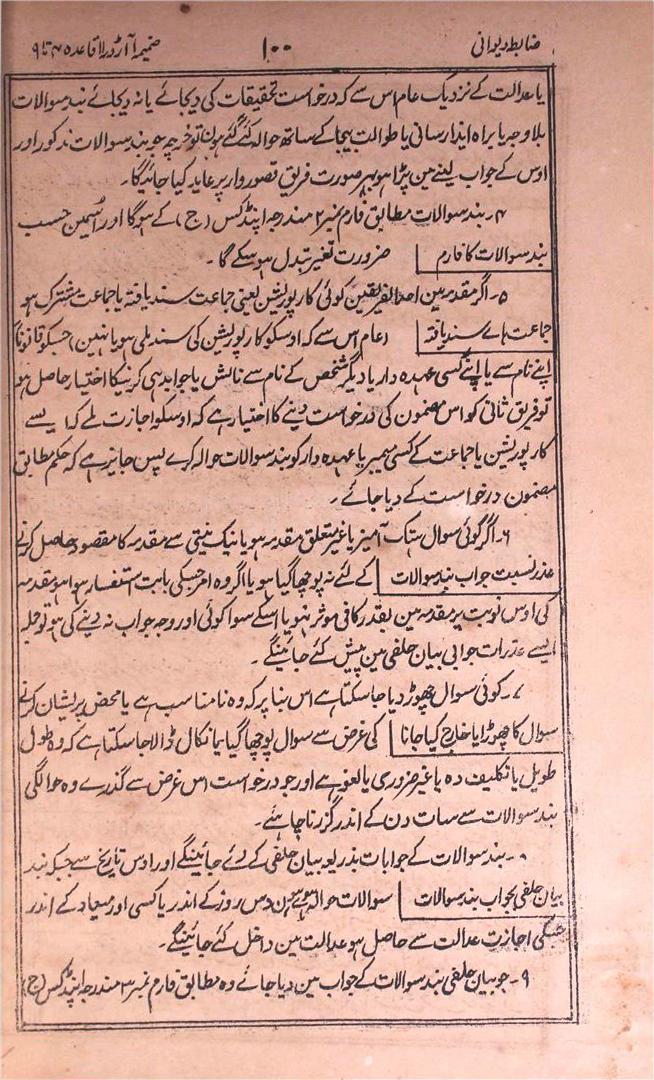 ضابطہ دیوانی
۱۰۰
ضمیمہ آرڈر ۱۱ قاعدہ ۴ تا ۹
یا عدالت کے نزدیک عام اس سے کہ درخواست تحقیقات کی دیجائے یا نہ دیجائے بند سوالات
بلا وجہ یا براہ ایذا رسانی یا طوالت بیجا کے ساتھ حوالہ کئے گئے ہون تو خرچہ جو بند سوالات مذکور اور
اوس کے جواب لینے مین پڑا ہو بہر صورت فریق قصور وار پر عاید کیا جائیگا۔
۴۔ بند سوالات مطابق فارم نمبر ۲ مندرجہ اپنڈکس (ج) کے ہوگا اور اسمین حسب
بند سوالات کا فارم
ضرورت تغیر تبدل ہو سکے گا۔
۵۔ اگر مقدمہ مین احد الفریقین کوئی کارپوریشن یعنی جماعت سند یافتہ یا جماعت مشترک ہو
جماعت ہائے سند یافتہ
(عام اس سے کہ اوسکو کارپوریشن کی سند ملی ہو یا نہین) جسکو قانوناً
اپنے نام سے یا اپنے کسی عہدہ دار یا دیگر شخص کے نام سے نالش یا جوابدہی کرنیکا اختیار حاصل ہو
تو فریق ثانی کو اس مضمون کی درخواست دینے کا اختیار ہے کہ اوسکو اجازت ملے کہ ایسے
کارپوریشن یا جماعت کے کسی ممبر یا عہدہ دار کو بند سوالات حوالہ کرے پس جایز ہے کہ حکم مطابق
مضمون درخواست کے دیا جائے۔
۶۔ اگر کوئی سوال ہتک آمیز یا غیر متعلق مقدمہ ہو یا نیک نیتی سے مقدمہ کا مقصود حاصل کرنے
عذر نسبت جواب بند سوالات
کے لئے نہ پوچھا گیا ہو یا اگر وہ امر جسکی بابت استفسار ہوا ہو مقدمہ
کی اوس نوبت پر مقدمہ مین بقدر کافی موثر نہو یا اسکے سوا کوئی اور وجہ جواب نہ دینے کی ہو تو جملہ
ایسے عذرات جوابی بیان حلفی مین پیش کئے جائینگے۔
۷۔ کوئی سوال چھوڑ دیا جا سکتا ہے اس بنا پر کہ وہ نامناسب ہے یا محض پریشان کرنے
سوال کا چھوڑا یا خارج کیا جانا
کی غرض سے سوال پوچھا گیا یا نکال ڈالا جا سکتا ہے کہ وہ طول
طویل یا تکلیف دہ یا غیر ضروری یا لغو ہے اور جو درخواست اس غرض سے گذرے وہ حوالگی
بند سوالات سے سات دن کے اندر گزرنا چاہئے۔
۸۔ بند سوالات کے جوابات بذریعہ بیان حلفی کے دئے جائینگے اور اوس تاریخ سے جبکہ بند
بیان حلفی بجواب بند سوالات
سوالات حوالہ ہوے ہون دس روز کے اندر یا کسی اور میعاد کے اندر
جسکی اجازت عدالت سے حاصل ہو عدالت مین داخل کئے جائینگے۔
۹۔ جو بیان حلفی بند سوالات کے جواب مین دیا جائے وہ مطابق فارم نمبر ۳ مندرجہ اپنڈکس (ج)